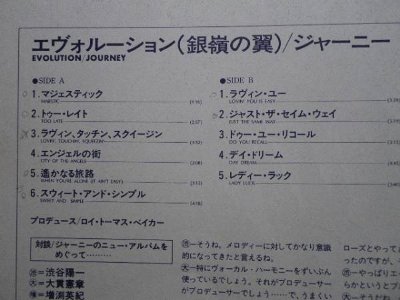 エヴォルーション(銀嶺の翼)/ジャーニー
EVOLUTION/JOURNEY
●SIDE A
1.マジェスティック
MAJESTIC
2.トゥー・レイト
TOO LATE
3.ラヴィン、タッチン、スクイージン
LOVIN', TOUCHIN', SQUEEZIN'
4.エンジェルの街
CITY OF THE ANGELS
5.遥かなる旅路
WHEN YOU'RE ALONE (IT AIN'T EASY)
6.スウィート・アンド・シンプル
SWEET AND SIMPLE
プロデュース/ロイ・トーマス・ベイカー
●SIDE B
1.ラヴィン・ユー
LOVIN' YOU IS EASY
2.ジャスト・ザ・セイム・ウェイ
JUST THE SAME WAY
3.ドゥー・ユー・リコール
DO YOU RECALL
4.デイ・ドリーム
DAY DREAM
5.レディー・ラック
LADY LUCK
対談/ジャーニーのニュー・アルバムを
めぐって………
=渋谷陽一
=大貫憲章
=増渕英紀
―そうね。メロディーに対してかなり意識
的になってきたと言えるね。
―特にヴォーカル・ハーモニーをずいぶん
使っているでしょう。それがプロデューサー
がプロデューサーでしょう……で、うまくい
ローズとやって
ったのですが、そ
―やっぱりエ
らかというとブ